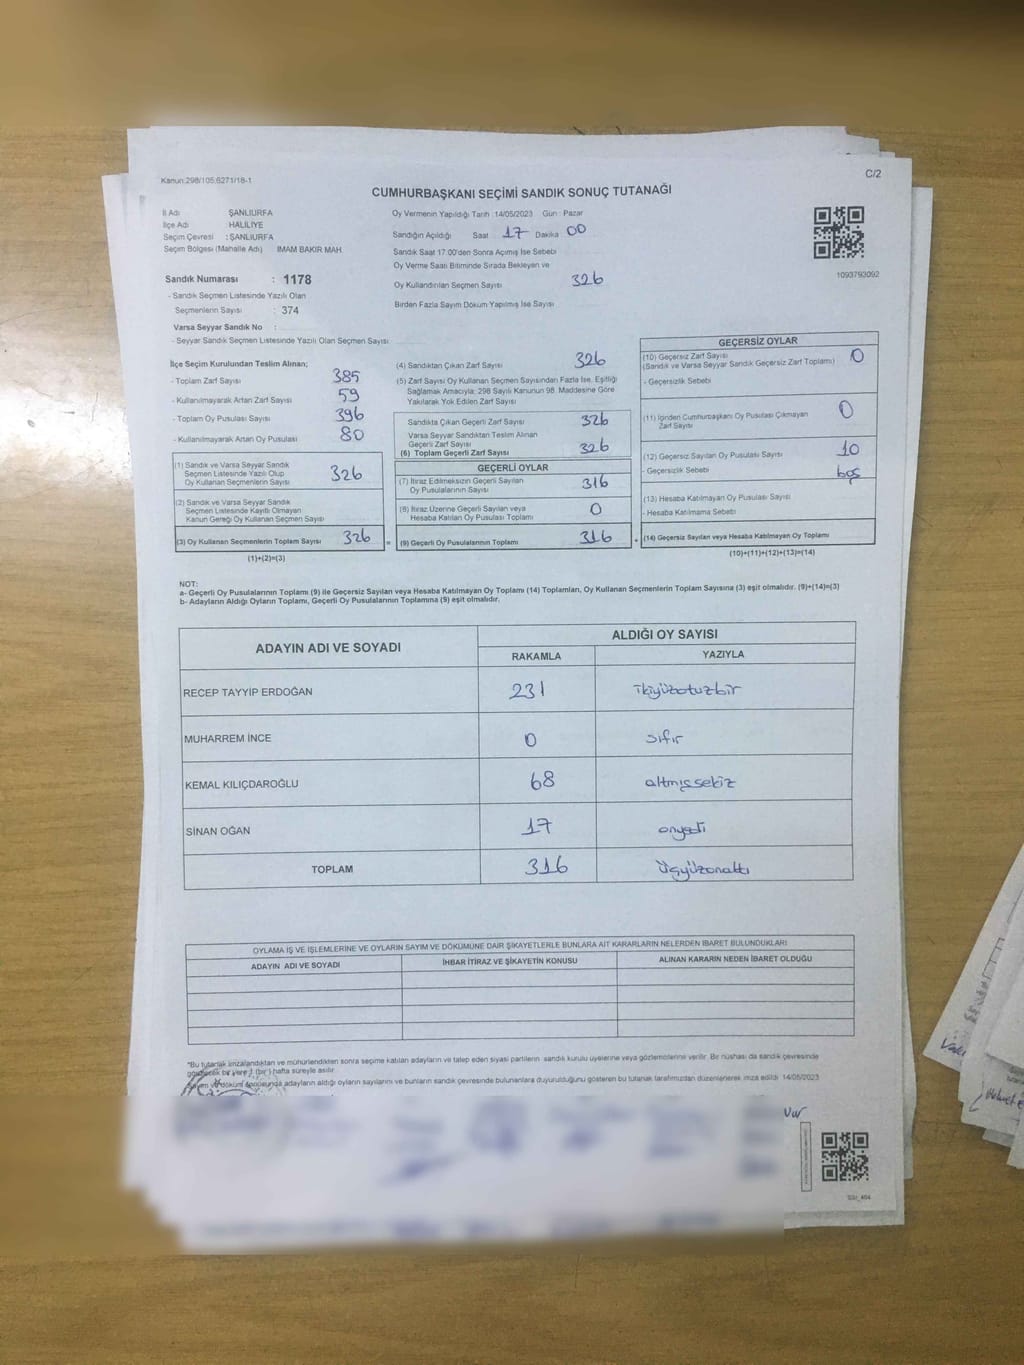 Kanun:298/105,6271/18-1
C/2
CUMHURBAŞKANI SEÇİMİ SANDIK SONUÇ TUTANAĞI
İl Adı ŞANLIURFA
İlçe Adı HALİLİYE
Seçim Çevresi : ŞANLIURFA
Seçim Bölgesi (Mahalle Adı) İMAM BAKIR MAH
Oy Vermenin Yapıldığı Tarih :14/05/2023 Gün : Pazar
Sandığın Açıldığı Saat 17 Dakika 00
Sandık Saat 17:00'den Sonra Açılmış İse Sebebi
Oy Verme Saati Bitiminde Sırada Bekleyen ve
Oy Kullandırılan Seçmen Sayısı 326
Birden Fazla Sayım Döküm Yapılmış İse Sayısı
1093793092
Sandık Numarası : 1178
- Sandık Seçmen Listesinde Yazılı Olan
Seçmenlerin Sayısı : 374
Varsa Seyyar Sandık No :
- Seyyar Sandık Seçmen Listesinde Yazılı Olan Seçmen Sayısı:
İlçe Seçim Kurulundan Teslim Alınan;
- Toplam Zarf Sayısı 385
- Kullanılmayarak Artan Zarf Sayısı 59
- Toplam Oy Pusulası Sayısı 396
- Kullanılmayarak Artan Oy Pusulası 80
(1) Sandık ve Varsa Seyyar Sandık
Seçmen Listesinde Yazılı Olup
Oy Kullanan Seçmenlerin Sayısı 326
(2) Sandık ve Varsa Seyyar Sandık
Seçmen Listesinde Kayıtlı Olmayan
Kanun Gereği Oy Kullanan Seçmen Sayısı
(3) Oy Kullanan Seçmenlerin Toplam Sayısı 326 =
(1)+(2)=(3)
(4) Sandıktan Çıkan Zarf Sayısı 326
(5) Zarf Sayısı Oy Kullanan Seçmen Sayısından Fazla İse, Eşitliği
Sağlamak Amacıyla; 298 Sayılı Kanunun 98. Maddesine Göre
Yakılarak Yok Edilen Zarf Sayısı
Sandıkta Çıkan Geçerli Zarf Sayısı 326
Varsa Seyyar Sandıktan Teslim Alınan
Geçerli Zarf Sayısı
(6) Toplam Geçerli Zarf Sayısı 326
GEÇERLİ OYLAR
(7) İtiraz Edilmeksizin Geçerli Sayılan
Oy Pusulalarının Sayısı 316
(8) İtiraz Üzerine Geçerli Sayılan veya
Hesaba Katılan Oy Pusulası Toplamı 0
(9) Geçerli Oy Pusulalarının Toplamı 316 +
GEÇERSİZ OYLAR
(10) Geçersiz Zarf Sayısı 0
(Sandık ve Varsa Seyyar Sandık Geçersiz Zarf Toplamı)
- Geçersizlik Sebebi
(11) İçinden Cumhurbaşkanı Oy Pusulası Çıkmayan
Zarf Sayısı 0
(12) Geçersiz Sayılan Oy Pusulası Sayısı 10
- Geçersizlik Sebebi boş
(13) Hesaba Katılmayan Oy Pusulası Sayısı
- Hesaba Katılmama Sebebi
(14) Geçersiz Sayılan veya Hesaba Katılmayan Oy Toplamı
(10)+(11)+(12)+(13)=(14)
NOT:
a- Geçerli Oy Pusulalarının Toplamı (9) ile Geçersiz Sayılan veya Hesaba Katılmayan Oy Toplamı (14) Toplamları, Oy Kullanan Seçmenlerin Toplam Sayısına (3) eşit olmalıdır. (9)+(14)=(3)
b- Adayların Aldığı Oyların Toplamı, Geçerli Oy Pusulalarının Toplamına (9) eşit olmalıdır.
ADAYIN ADI VE SOYADI ALDIĞI OY SAYISI
RAKAMLA YAZIYLA
RECEP TAYYİP ERDOĞAN 231 ikiyüzotuzbir
MUHARREM İNCE 0 sıfır
KEMAL KILIÇDAROĞLU 68 altmışsekiz
SİNAN OĞAN 17 onyedi
TOPLAM 316 üçyüzonaltı
OYLAMA İŞ VE İŞLEMLERİNE VE OYLARIN SAYIM VE DÖKÜMÜNE DAİR ŞİKAYETLERLE BUNLARA AİT KARARLARIN NELERDEN İBARET BULUNDUKLARI
ADAYIN ADI VE SOYADI İHBAR İTİRAZ VE ŞİKAYETİN KONUSU ALINAN KARARIN NEDEN İBARET OLDUĞU
*Bu tutanak imzalandıktan ve mühürlendikten sonra seçime katılan adayların ve talep eden siyasi partilerin sandık kurulu üyelerine veya gözlemcilerine verilir. Bir nüshası da sandık çevresinde
görülecek bir yere 1 (bir ) hafta süreyle asılır.
Sayım ve döküm sonucunda adayların aldığı oyların sayılarını ve bunların sandık çevresinde bulunanlara duyurulduğunu gösteren bu tutanak tarafımızdan düzenlenerek imza edildi 14/05/2023